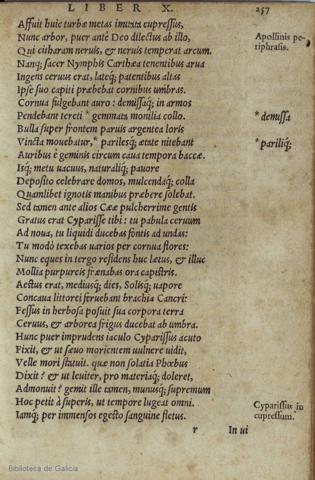 LIBER X.
257
Affuit huic turbæ metas imitata cupressus,
Nunc arbor, puer antè Deo dilectus ab illo,
Apollinis pe-
riphrasis.
Qui citharam neruis, & neruis temperat arcum.
Nanq; sacer Nymphis Carthæa tenentibus arua
Ingens ceruus erat, lateq; patentibus altas
Ipse suo capiti præbebat cornibus umbras.
Cornua fulgebant auro: demissaq; in armos
Pendebant tereti * gemmata monilia collo.
* demissa
Bulla super frontem paruis argentea loris
Vincta mouebatur, * parilesq; ætate nitebant
* pariliq;
Auribus è geminis circum caua tempora baccæ.
Isq; metu uacuus, naturaliq; pauore
Deposito celebrare domos, mulcendaq; colla
Quamlibet ignotis manibus præbere solebat.
Sed tamen ante alios Cææ pulcherrime gentis
Gratus erat Cyparisse tibi: tu pabula ceruum
Ad noua, tu liquidi ducebas fontis ad undas:
Tu modò texebas uarios per cornua flores:
Nunc eques in tergo residens huc lætus, & illuc
Mollia purpureis frænabas ora capistris.
Aestus erat, mediusq; dies, Solisq; uapore
Concaua littorei feruebant brachia Cancri:
Fessus in herbosa posuit sua corpora terra
Ceruus, & arborea frigus ducebat ab umbra.
Hunc puer imprudens iaculo Cyparissus acuto
Fixit, & ut sæuo morientem uulnere uidit,
Velle mori statuit. quæ non solatia Phœbus
Dixit? & ut leuiter, pro materiaq; doleret,
Admonuit? gemit ille tamen, munusq; supremum
Hoc petit à superis, ut tempore lugeat omni.
Iamq; per immensos egesto sanguine fletus.
Cyparissus in
cupressum.
r
In ui
Biblioteca de Galicia